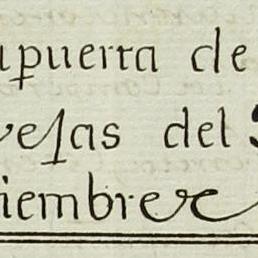 upuerta de
vejas del S
iembre